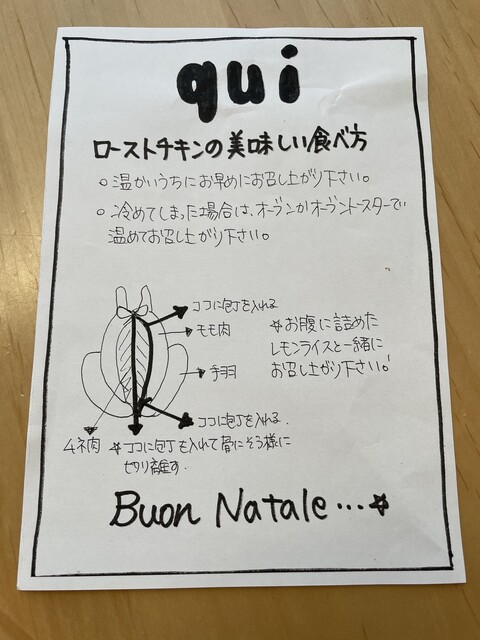 qui
ローストチキンの美味しい食べ方
○温かいうちにお早めにお召し上がり下さい。
○冷めてしまった場合は、オーブンかオーブントースターで
温めてお召し上がり下さい。
ココに包丁を入れる
モモ肉
手羽
ココに包丁を入れる.
ムネ肉
☆ココに包丁を入れて骨にそう様に
切り離す.
☆お腹に詰めた
レモンライスと一緒に
お召し上がり下さい!
Buon Natale…☆